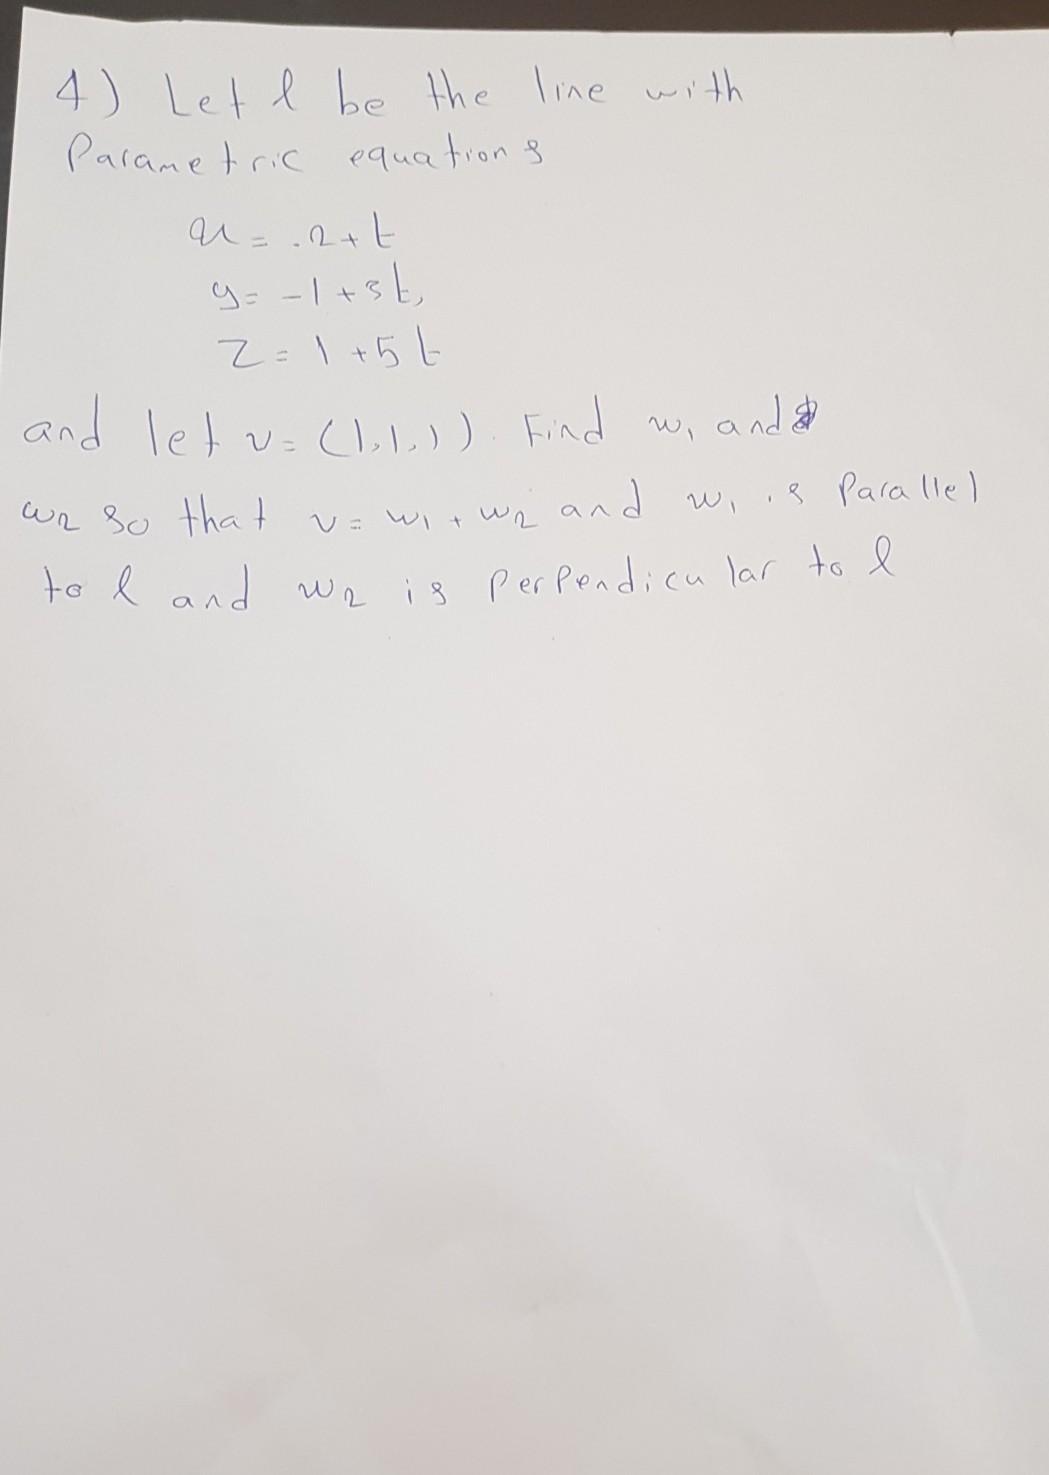 4) Let l be the line with
Parametric equations
x = .2+t
y= -1+3t,
z = 1+5t
and let v= (1,1,1). Find w1 and
w2 so that v= w1 + w2 and w1 is Parallel
to l and w2 is Perpendicular to l